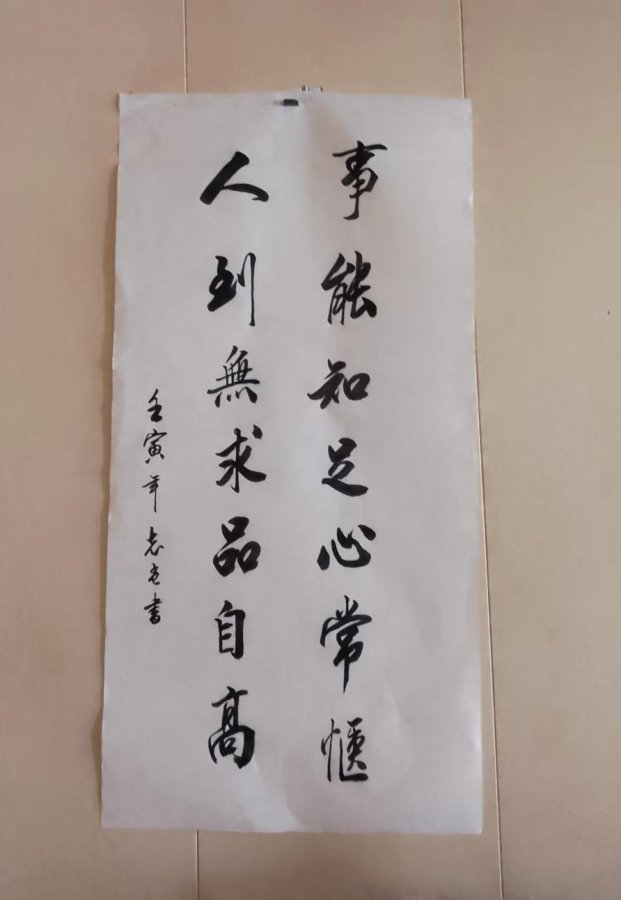 事能知足心常愜
人到無求品自高
壬寅年志書